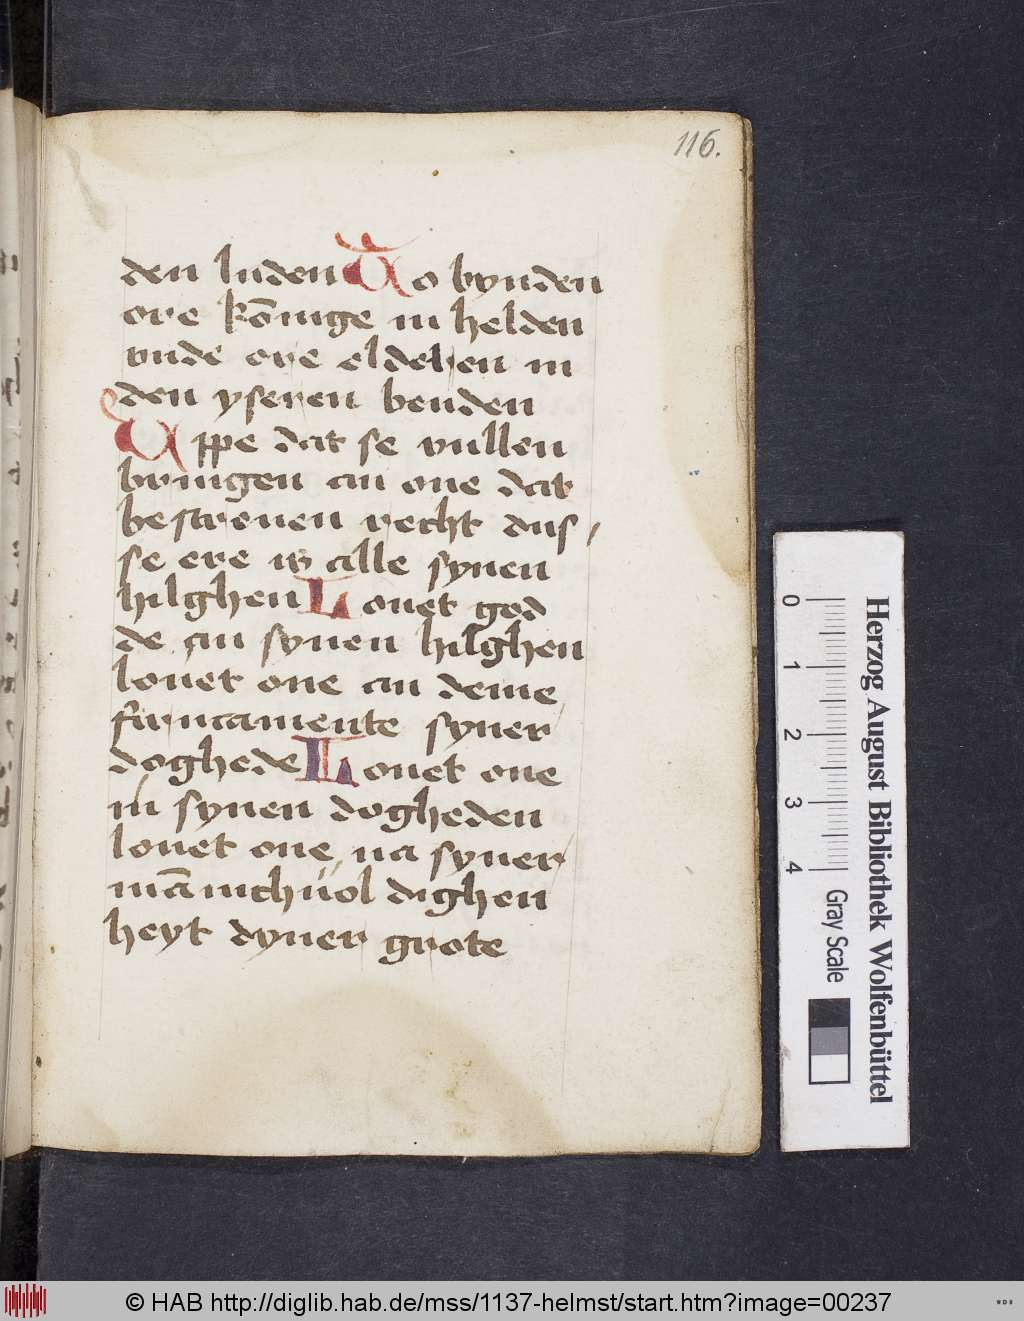 116.
den luden To bynden
ore kōnige in helden
vnde ere eldehen in
den yseren benden
Uppe dat se vullen
bringen an one dat
bescreuen recht dus/
se ere is alle synen
hilghen Louet god
de an synen hilghen
louet one an deme
firmamente syner
doghede Louet one
in synen dogheden
louet one na syner
mānichuol dighen
heyt dyner grote
0 1 2 3 4
Gray Scale
Herzog August Bibliothek Wolfenbüttel
© HAB http://diglib.hab.de/mss/1137-helmst/start.htm?image=00237